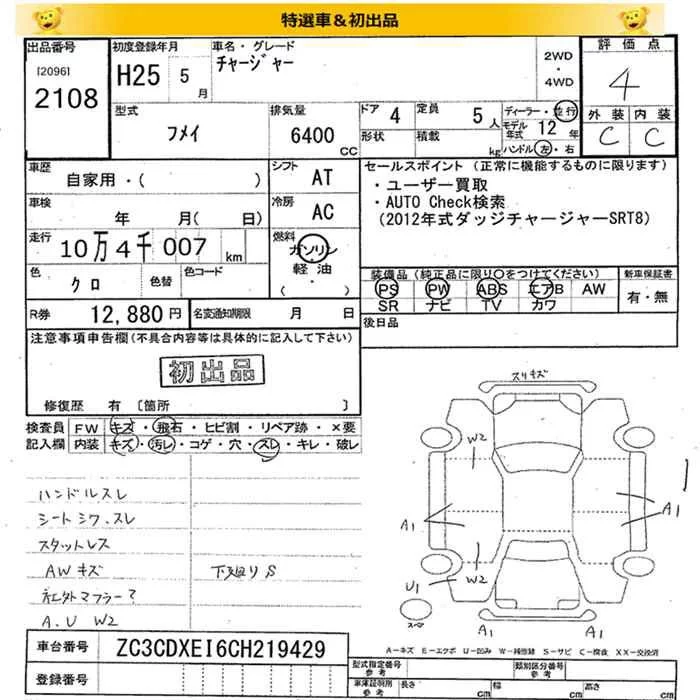 特選車&初出品
出品番号
[2096]
2108
初度登録年月
H25 5 月
車名・グレード
チャージャー
2WD
・
4WD
評価点
4
外装 内装
C C
型式
フメイ
排気量
6400 CC
ドア 4
定員 5 人
形状
積載 kg
ディーラー・並行
モデル年式 12 年
ハンドル 左・右
車歴
自家用・( )
シフト AT
車検
年 月( 日)
冷房 AC
走行
10万4千007 km
燃料
ガソリン
軽油
( ・ )
色
クロ
色替
色コード
R券 12,880円
名変通知期限 月 日
セールスポイント (正常に機能するものに限ります)
・ユーザー買取
・AUTO Check検索
(2012年式ダッジチャージャーSRT8)
装備品(純正品に限り○をつけてください)
PS PW ABS エアB AW
SR ナビ TV カワ
新車保証書
有・無
後日品
注意事項申告欄(不具合内容等は具体的に記入して下さい)
初出品
修復歴 有 [箇所 ]
検査員記入欄
FW キズ・飛石・ヒビ割・リペア跡・×要
内装 キズ・汚レ・コゲ・穴・スレ・キレ・破レ
ハンドルスレ
シートシワ、スレ
スタットレス
AWキズ
社外マフラー?
A.U W2
下廻りS
スリキズ
W2
A1
A1
W2
U1
スペア
A1
A1
A-キズ E-エクボ U-凹み W-補修跡 S-サビ C-腐食 XX-交換済
車台番号 ZC3CDXEI6CH219429
登録番号
型式指定番号
参考
類別区分番号
参考
車庫証明用
参考
長さ cm
幅 cm
高さ cm